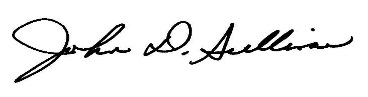 John D. Sullivan